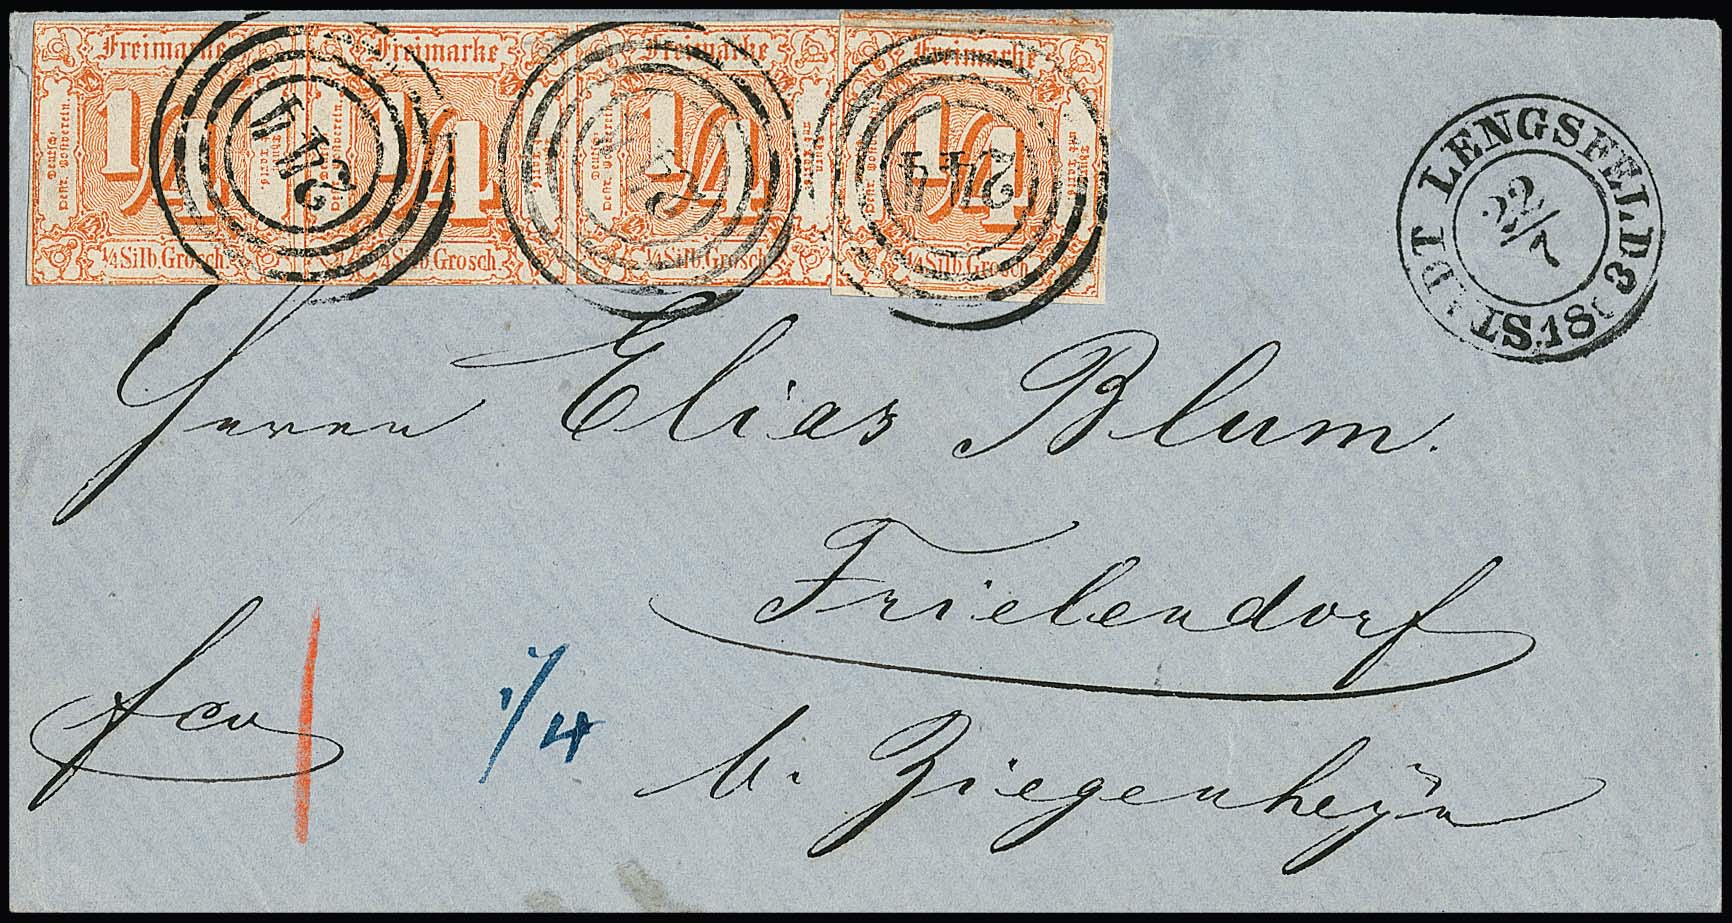 Freimarke Freimarke Freimarke Freimarke
1/4 1/4 1/4 1/4
Deutsch-
Oestr. Postverein.
¼ Silb. Grosch. ¼ Silb. Grosch. ¼ Silb. Grosch. ¼ Silb. Grosch.
244 244 244 244
STADT LENGSFELD
22/7
Herrn Elias Blum.
Frielendorf
fco 1/4 b. Ziegenheyn